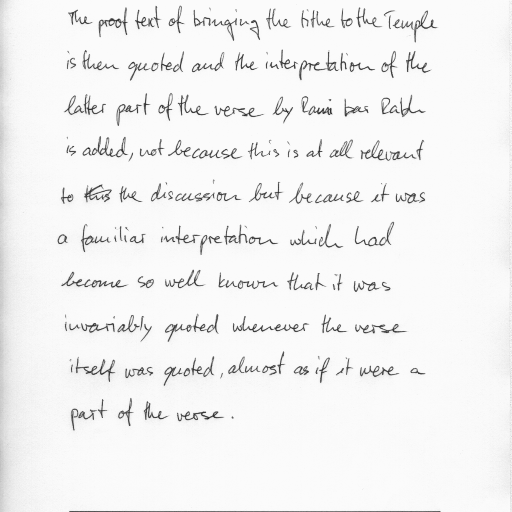 The proof text of bringing the tithe to the Temple
is then quoted and the interpretation of the
latter part of the verse by Rami bar Rabh
is added, not because this is at all relevant
to the discussion but because it was
a familiar interpretation which had
become so well known that it was
invariably quoted whenever the verse
itself was quoted, almost as if it were a
part of the verse.